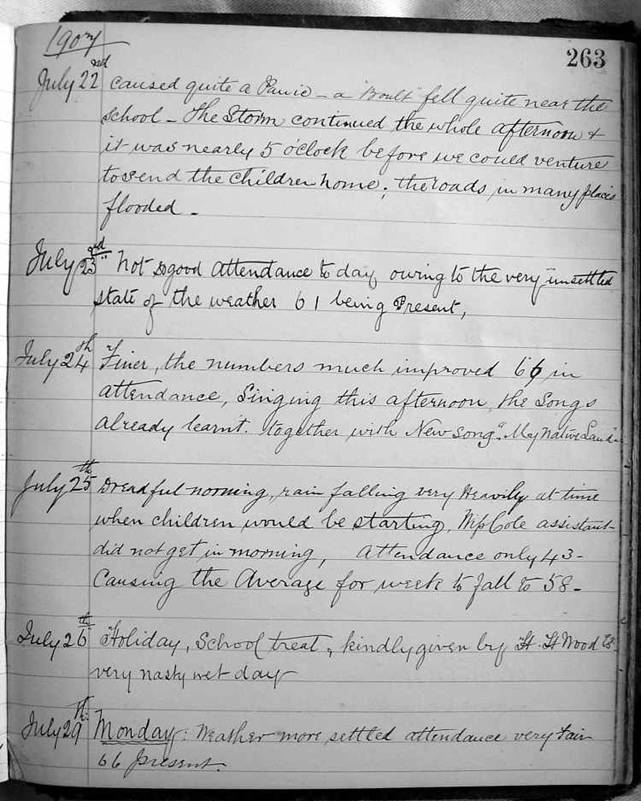 1907
263
July 22nd caused quite a Panic - a "Boult" fell quite near the
school - The Storm continued the whole afternoon &
it was nearly 5 o'clock before we could venture
to send the children home; the roads in many places
flooded -
July 23rd Not so good attendance to day owing to the very unsettled
state of the weather 61 being Present,
July 24th Finer, the numbers much improved 66 in
attendance, Singing this afternoon, the Songs
already learnt. together with New song "My Native Land"
July 25th Dreadful morning, rain falling very Heavily at time
when children would be starting, Miss Cole assistant
did not get in morning, Attendance only 43 -
Causing the Average for week to fall to 58 -
July 26th Holiday, School treat, kindly given by H. H Wood
very nasty wet day
July 29th: Monday: Weather more settled attendance very Fair
66 present.